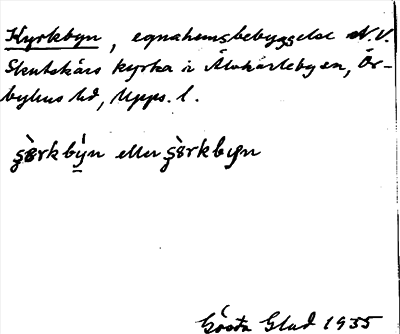 Kyrkbyn, egnahemsbebyggelse N.V.
Skutskärs kyrka i Älvkarlebyen, Ör-
byhus hd, Upps. l.
eller
Gösta Glad 1935